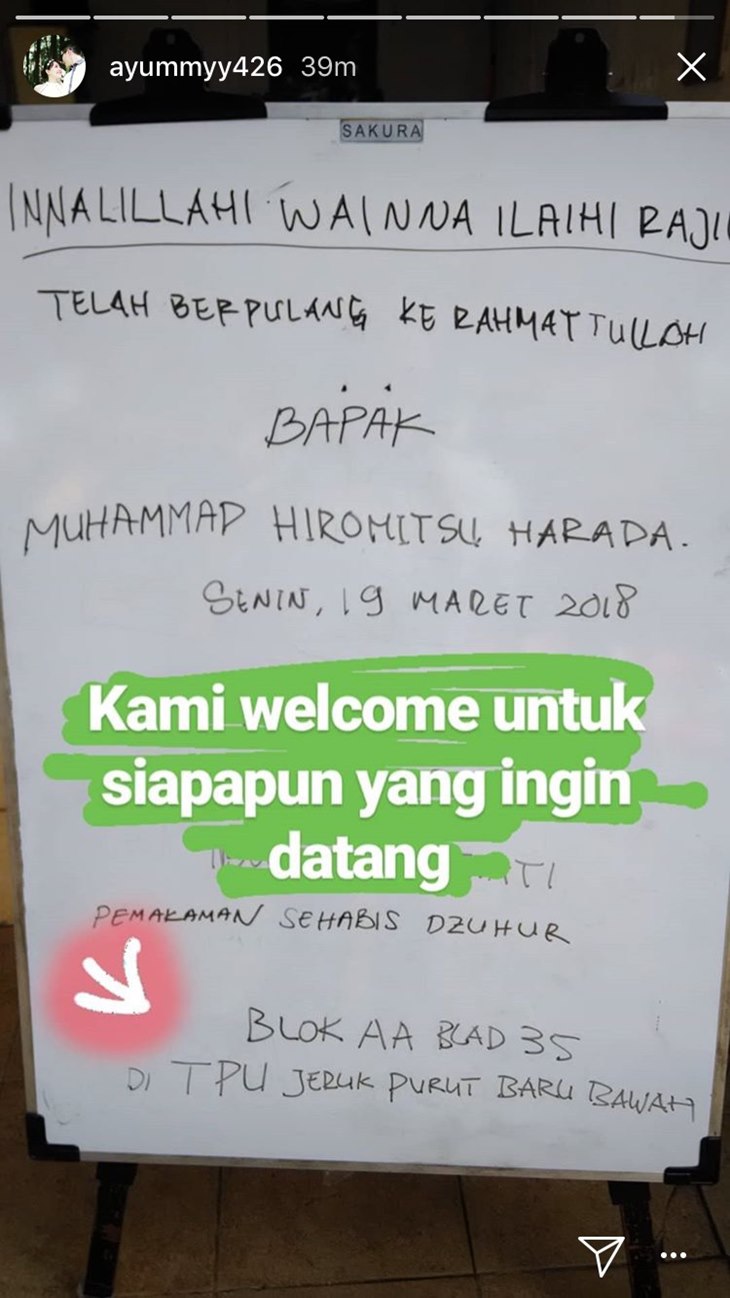 ayummyy426 39m
SAKURA
INNALILLAHI WAINNA ILAIHI RAJI
TELAH BERPULANG KE RAHMATTULLAH
BAPAK
MUHAMMAD HIROMITSU HARADA.
SENIN, 19 MARET 2018
Kami welcome untuk
siapapun yang ingin
datang
PEMAKAMAN SEHABIS DZUHUR
BLOK AA BLAD 35
DI TPU JERUK PURUT BARU BAWAH